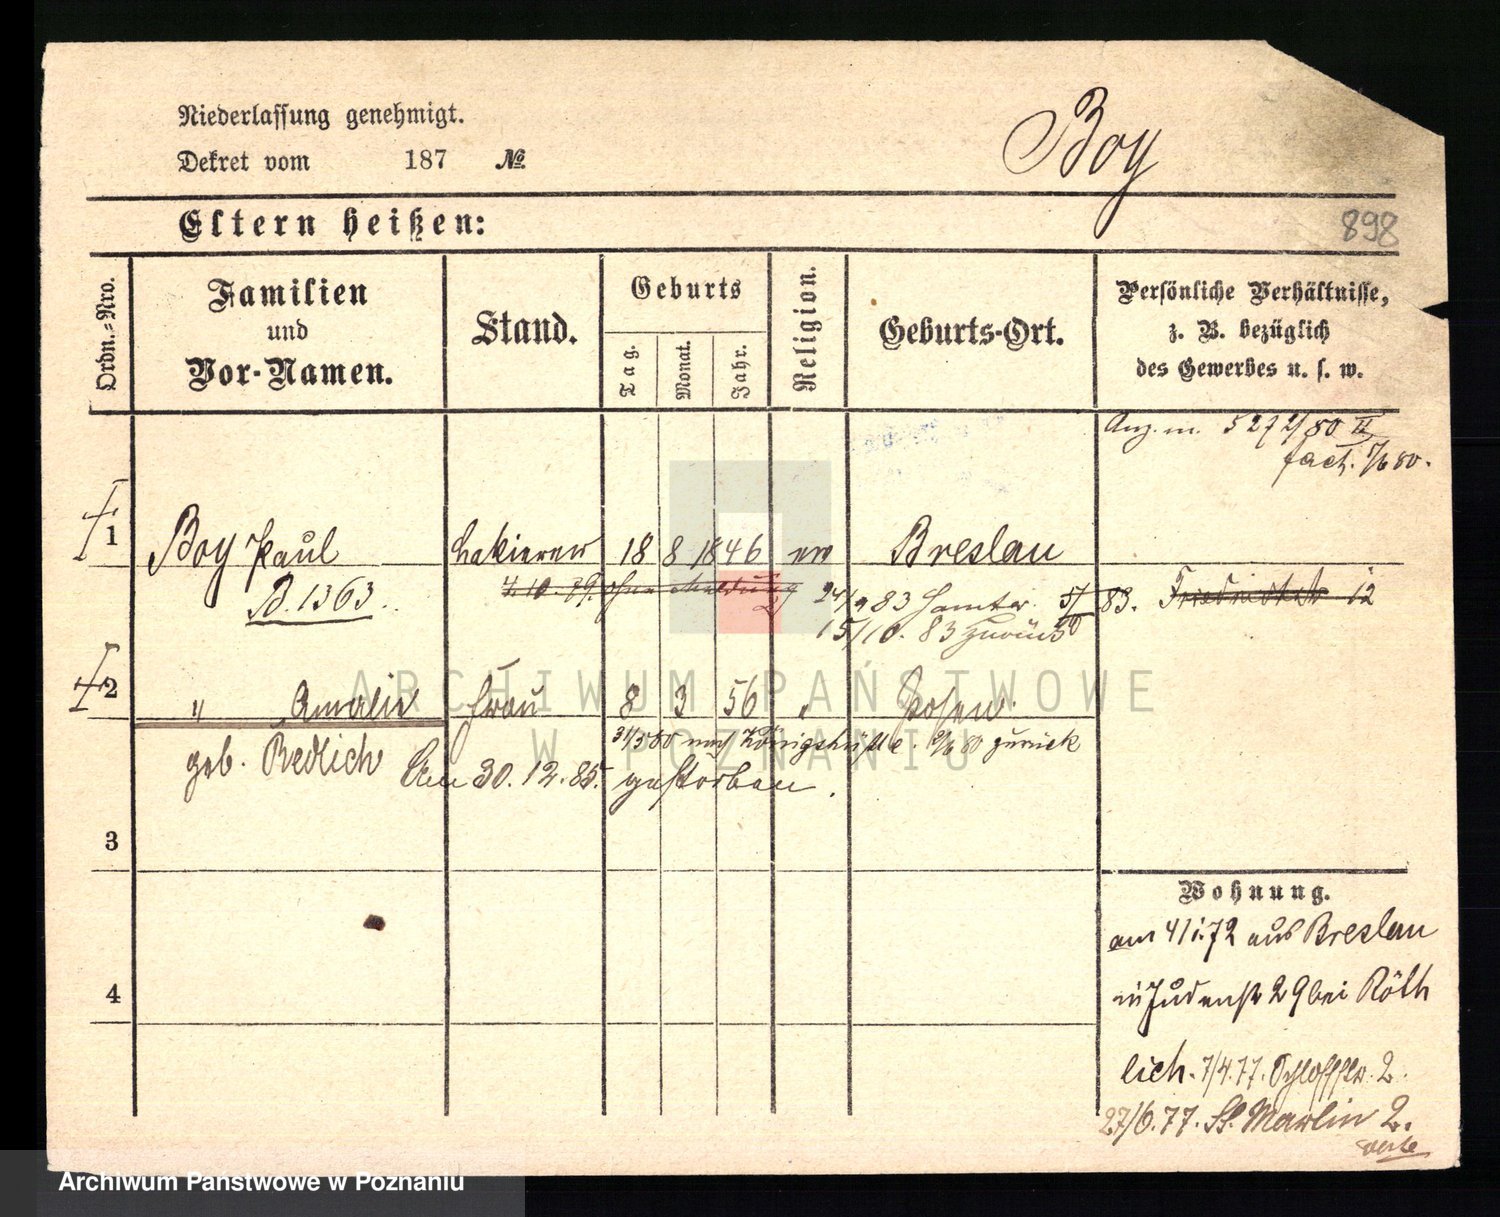 Niederlassung genehmigt.
Dekret vom 187 №
Boy
Eltern heißen:
898
Ordn.-Nro.
Familien und Vor-Namen.
Stand.
Geburts
Tag.
Monat.
Jahr.
Religion.
Geburts-Ort.
Persönliche Verhältnisse,
z. B. bezüglich
des Gewerbes u. s. w.
Anz. m. 527 2/80 II
fact. 1/6 80.
1 Boy Paul Lakierer 18 8 1846 ev Breslau
B. 1363. 4.10.79. ohne Meldung 24/9 83 Samter 83. 12
15/10. 83 zurück
2 " Amalie Frau 8 3 56 " Posen.
31/5 80 nach Königshütte. 9/6 80 zurück
geb. Redlich Am 30.12.85. gestorben.
3
4
Wohnung.
am 4/1.72 aus Breslau
in Judenstr 29 bei Röth
lich. 7/4.77. Schloßstr. 2.
27/6.77. St. Martin 2.
verte
ARCHIWUM PAŃSTWOWE
W POZNANIU
Archiwum Państwowe w Poznaniu